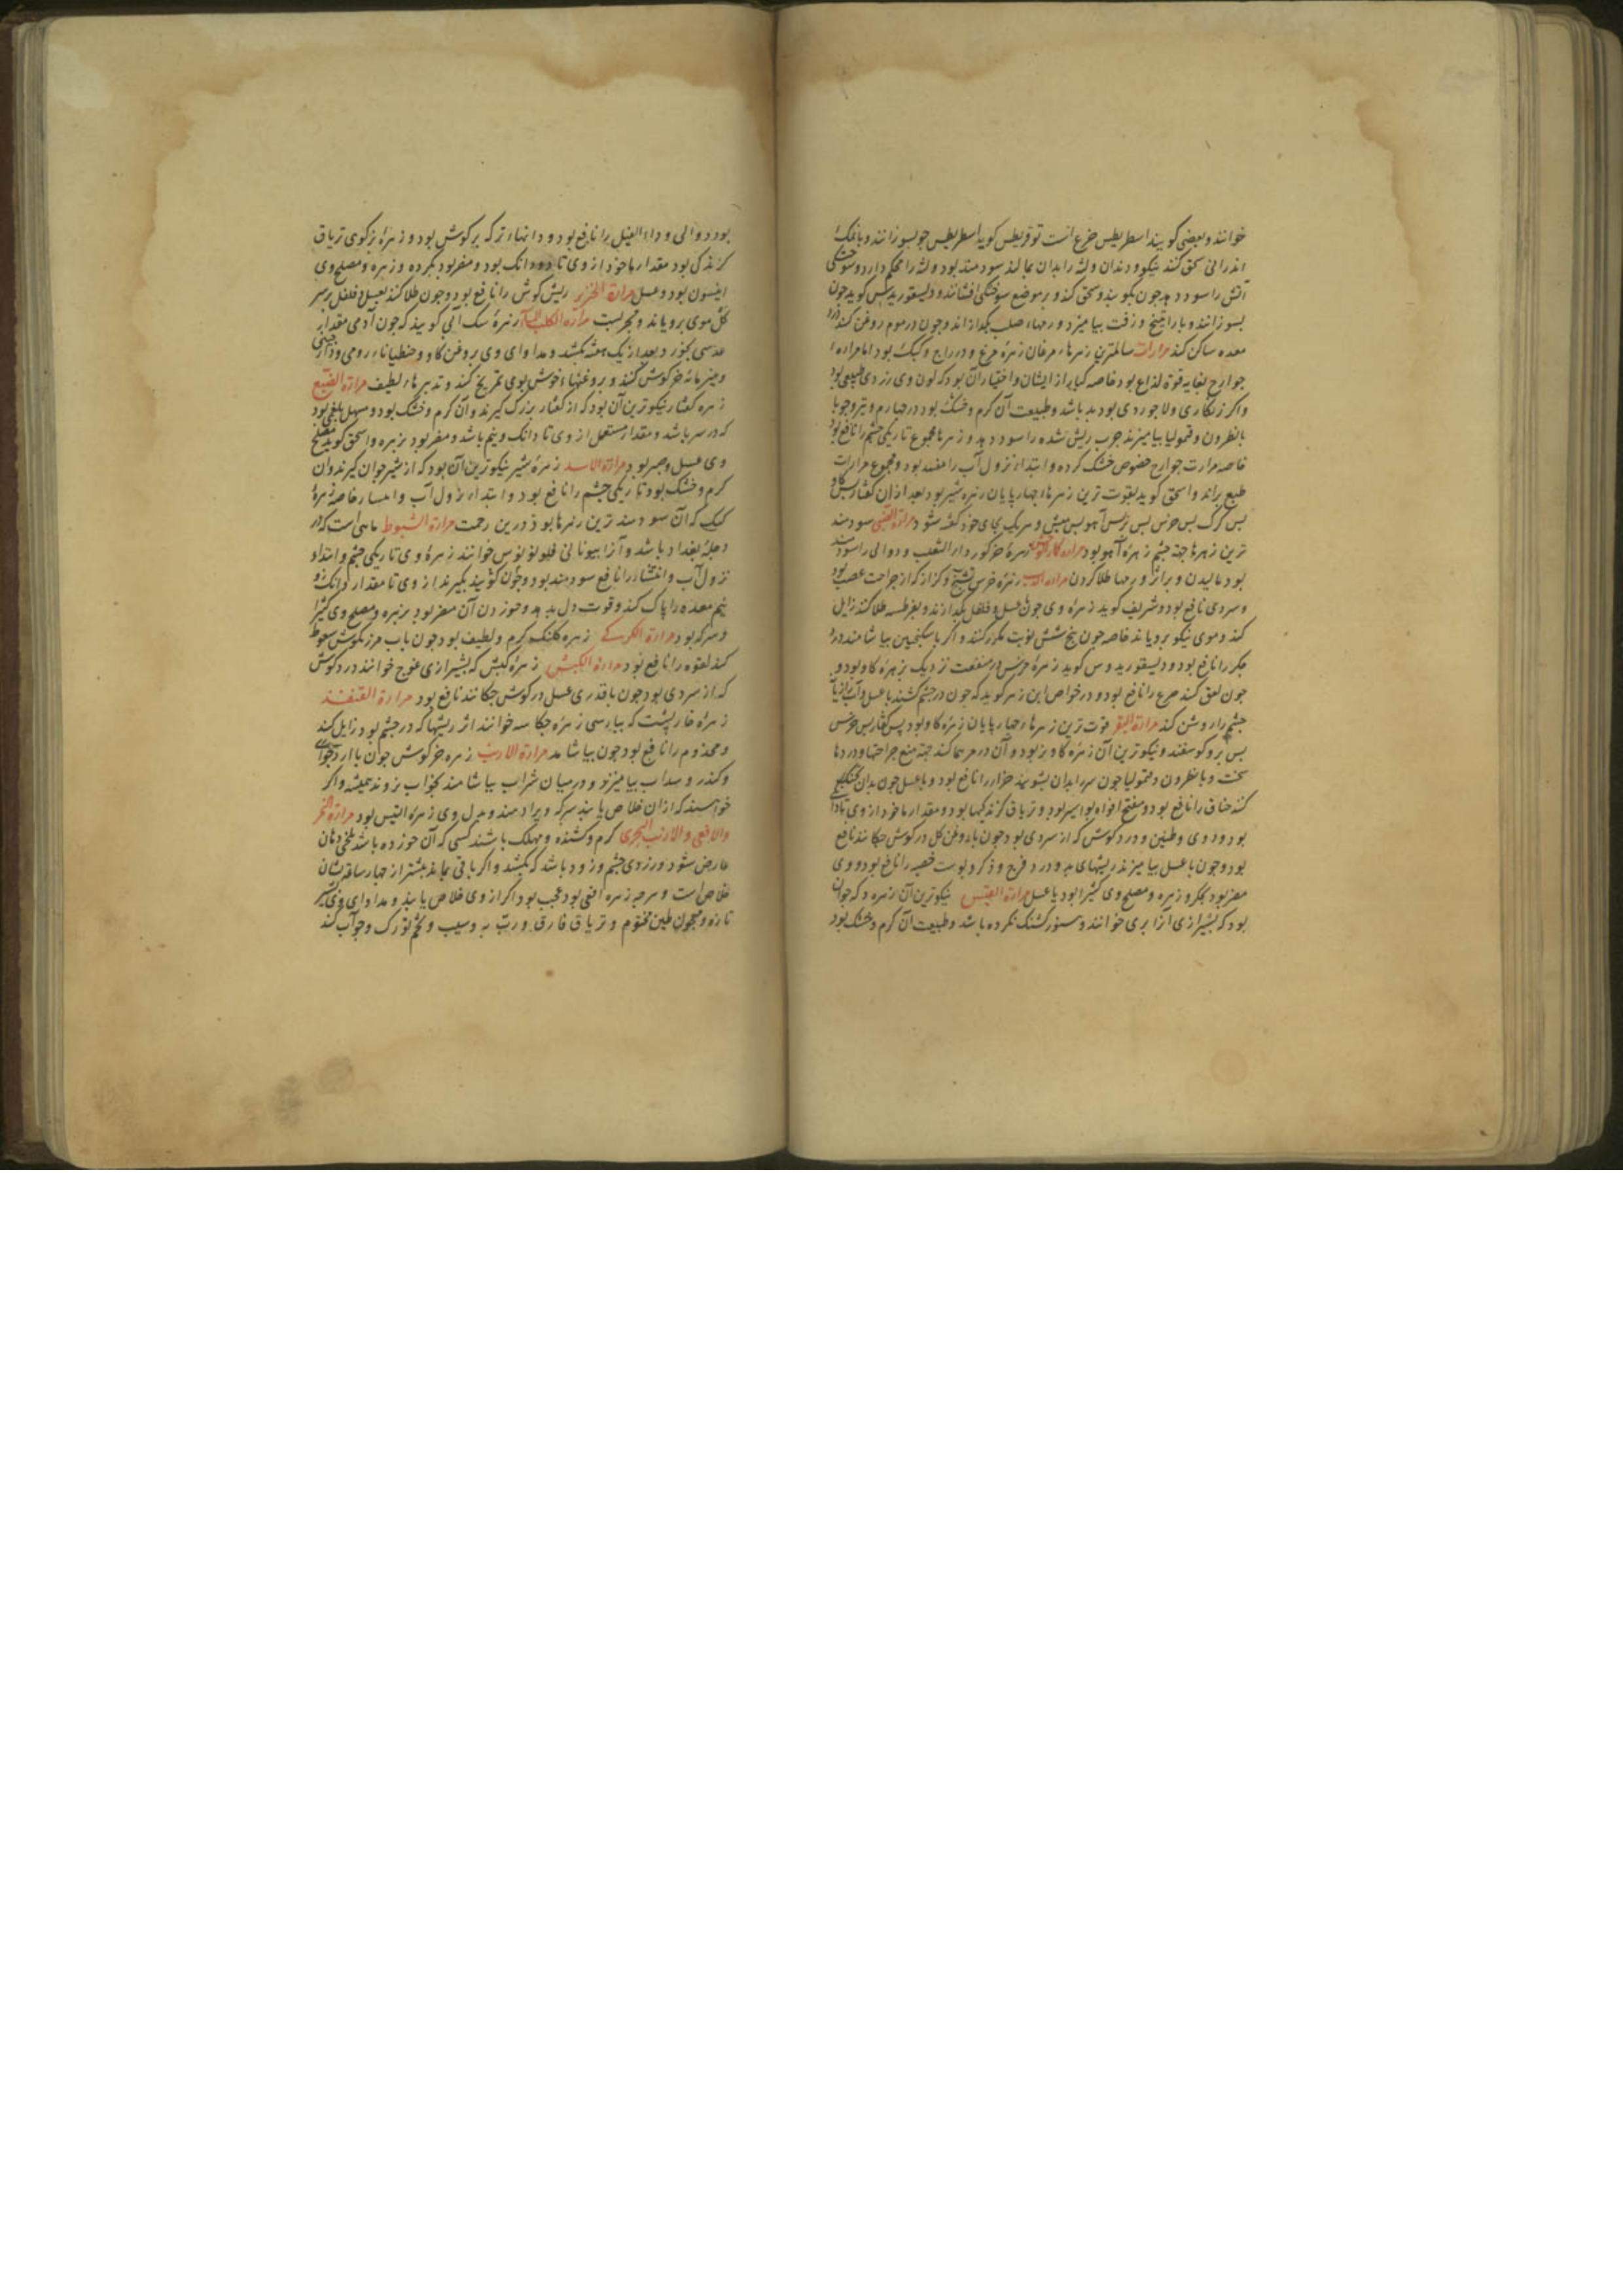 خوانند و بعضی کویند اسطریطیس خزع است توقریطس کوید اسطریطیس جو بسوزانند و با نمک
اندرانی سحق کنند نیکو و دندان و لثه را بدان بمالند سودمند بود و لثه را محکم دارد و سوختکی
آتش را سود دهد جون بکوبند و سحق کنند و بر موضع سوختکی افشانند و دیسقوریدس کوید جون
بسوزانند و با راتینج و زفت بیامیزد ورمهاء صلب بکدازاند و جون در موم روغن کنند درد
معده ساکن کند مرارات سالمترین زهرهاء مرغان زهره مرغ و دراج و کبک بود اما مراره
جوارح بغایه قوة لذاع بود خاصه کبار از ایشان و اختیار آن بود که لون وی زردی طبیعی بود
واکر زنکاری و لاجوردی بود بد باشد و طبیعت آن کرم و خشک بود در چهارم و تیز و جو با
با نطرون و قیمولیا بیامیزند جرب ریش شده را سود دهد و زهرها مجموع تاریکی چشم را نافع بود
خاصه مرارت جوارح خصوص خشک کرده و ابتداء نزول آب را مفید بود و مجموع مرارات
طبع براند و اسحق کوید بقوت ترین زهرهاء چهارپایان زهره شیر بود بعد از آن کفتار بس کاو
بس کرک بس خرس بس بز بس آهو بس میش و هر یک بجای خود کفته شود مرارة الظبی سودمند
ترین زهرها جهة چشم زهرهٔ آهو بود مراره زهرهٔ خر کور داء الثعلب و دوالی را سودمند
بود مالیدن و بر اثر ورمها طلا کردن مرارة الدب زهرهٔ خرس تشنج و کزاز که از جراحت عصب بود
و سردی نافع بود و شریف کوید زهرهٔ وی جون با عسل و فلفل بکدازند و بقرطسه طلا کنند زایل
کند و موی نیکو برویاند خاصه جون پنج شش نوبت مکرر کنند و اکر با سکنجبین بیاشامند درد
جکر را نافع بود و دیسقوریدوس کوید زهرهٔ خرس در منفعت نزدیک بزهره کاو بود و
جون لعق کنند صرع را نافع بود و در خواص ابن زهر کوید که جون در چشم کشند با عسل و آب رازیانه
چشم را روشن کند مرارة البقر قوت ترین زهرهاء چهارپایان زهره کاو بود پس کفتار بس خرس
بس بز و کوسفند و نیکوترین آن زهرهٔ کاو نر بود و آن در مرهمها کنند جهة منع جراحتها و دردها
سخت و با نطرون و قیمولیا جون سر را بدان بشویند حزاز را نافع بود و با عسل جون بدان تحنک
کنند خناق را نافع بود و مفتح افواه بواسیر بود و تریاق کزندکیها بود و مقدار ماخوذ از وی تا دانکی
بود و دوی و طنین و درد کوش که از سردی بود جون با روغن کل در کوش چکانند نافع
بود و جون با عسل بیامیزند ریشهای بد و درد فرج و ذکر و پوست خصیه را نافع بود و وی
مضر بود بجکر و زهره و مصلح وی کثیرا بود یا عسل مرارة التیس نیکوترین آن زهره که جوان
بود که بشیرازی آنرا بری خوانند و هنوز کشنک نکرده باشد و طبیعت آن کرم و خشک بود
بود دوالی و داء الفیل را نافع بود و دانهاء تر که بر کوش بود و زهرهٔ بز کوهی تریاق
کزندکی بود مقدار ماخوذ از وی تا دو دانک بود و مضر بود بکرده و زهره و مصلح وی
انیسون بود و عسل مرارة الخنزیر ریش کوش را نافع بود و جون طلا کنند بعسل و فلفل بر سر
کل موی برویاند و مجربست مرارة الکلب الماء زهرهٔ سک آبی کویند که جون آدمی مقدار
عدسی بخورد بعد از یک هفته بکشد و مداوای وی بروغن کاو و جنطیاناء رومی و دارچینی
و پنیر مایه خرکوش کنند و بروغنهاء خوش بوی تمریخ کنند و تدبیرهاء لطیف مرارة الضبع
زهره کفتار نیکوترین آن بود که از کفتار بزرک کیرند و آن کرم و خشک بود و مسهل بلغمی بود
که در سر باشد و مقدار مستعمل از وی تا دانک و نیم باشد و مضر بود بزهره و اسحق کوید مصلح
وی عسل و صبر بود مرارة الاسد زهرهٔ شیر نیکوترین آن بود که از شیر جوان کیرند و آن
کرم و خشک بود تاریکی چشم را نافع بود و ابتداء نزول آب و انتشار خاصه زهرهٔ
کبک که آن سودمندترین زهرها بود درین زحمت مرارة الشبوط ماهی است که در
دجلهٔ بغداد باشد و آنرا بیونانی خوانند زهرهٔ وی تاریکی چشم و ابتداء
نزول آب و انتشار را نافع سودمند بود و جون کویند بکیرند از وی تا مقدار دانک و
نیم معده را پاک کند و قوت دل بدهد و خوردن آن مضر بود بزهره و مصلح وی کثیرا
و سرکه بود مرارة الکرکی زهره کلنک کرم و لطیف بود جون بآب مرزنکوش سعوط
کنند لقوه را نافع بود مرارة الکبش زهرهٔ کبش که بشیرازی خوانند درد کوش
که از سردی بود جون با قدری عسل در کوش چکانند نافع بود مرارة القنفذ
زهرهٔ خارپشت که بپارسی زهره چکاسه خوانند اثر ریشها که در چشم بود زایل کند
و مجذوم را نافع بود جون بیاشامد مرارة الارنب زهره خرکوش جون با آرد جو
و کندر و سداب بیامیزند و در میان شراب بیاشامند بخواب روند همیشه و اکر
خواهند که از آن خلاص یابند سرکه ویرا دهند و بدل وی زهرهٔ التیس بود مرارة النمر
والافعی والارنب البحری کرم و کشنده و مهلک باشند کسی که آن خورده باشد تلخی دهان
عارض شود و زردی چشم و زود باشد که بکشد و اکر باقی بماند بیشتر از چهار ساقه نشان
خلاص است و هر چه زهره افعی بود عجب بود اکر از وی خلاص یابند و مداوای وی شیر
تازه و معجون طین مختوم و تریاق فارق و رب به و سیب و تخم تورک و جو آب کنند